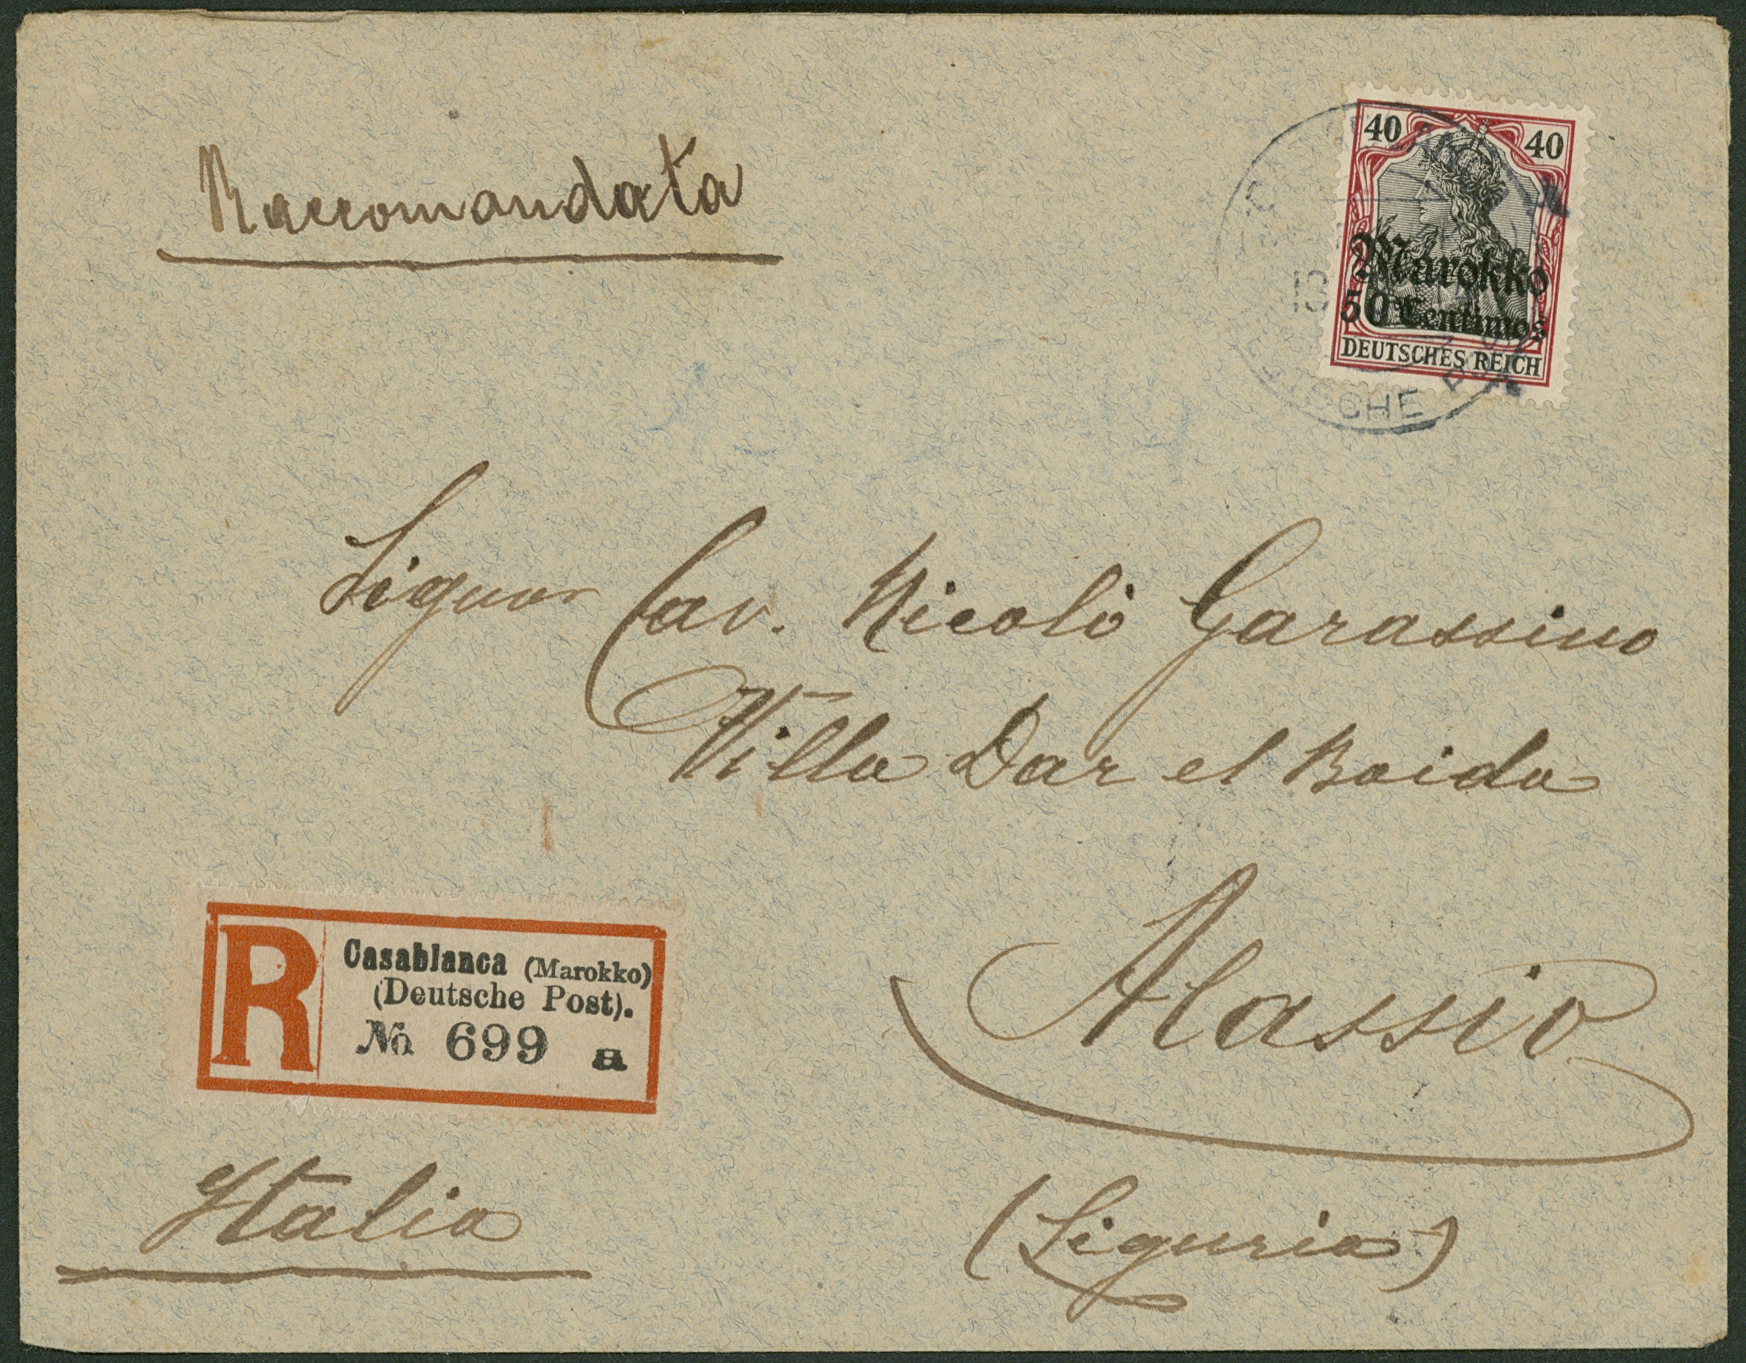 Raccomandata
40 40
Marokko
50 Centimos
DEUTSCHES REICH
13
DEUTSCHE POST
Signor Cav. Nicolò Garassino
Villa Dar el Baida
Alassio
(Liguria)
R
Casablanca (Marokko)
(Deutsche Post).
No 699 a
Italia